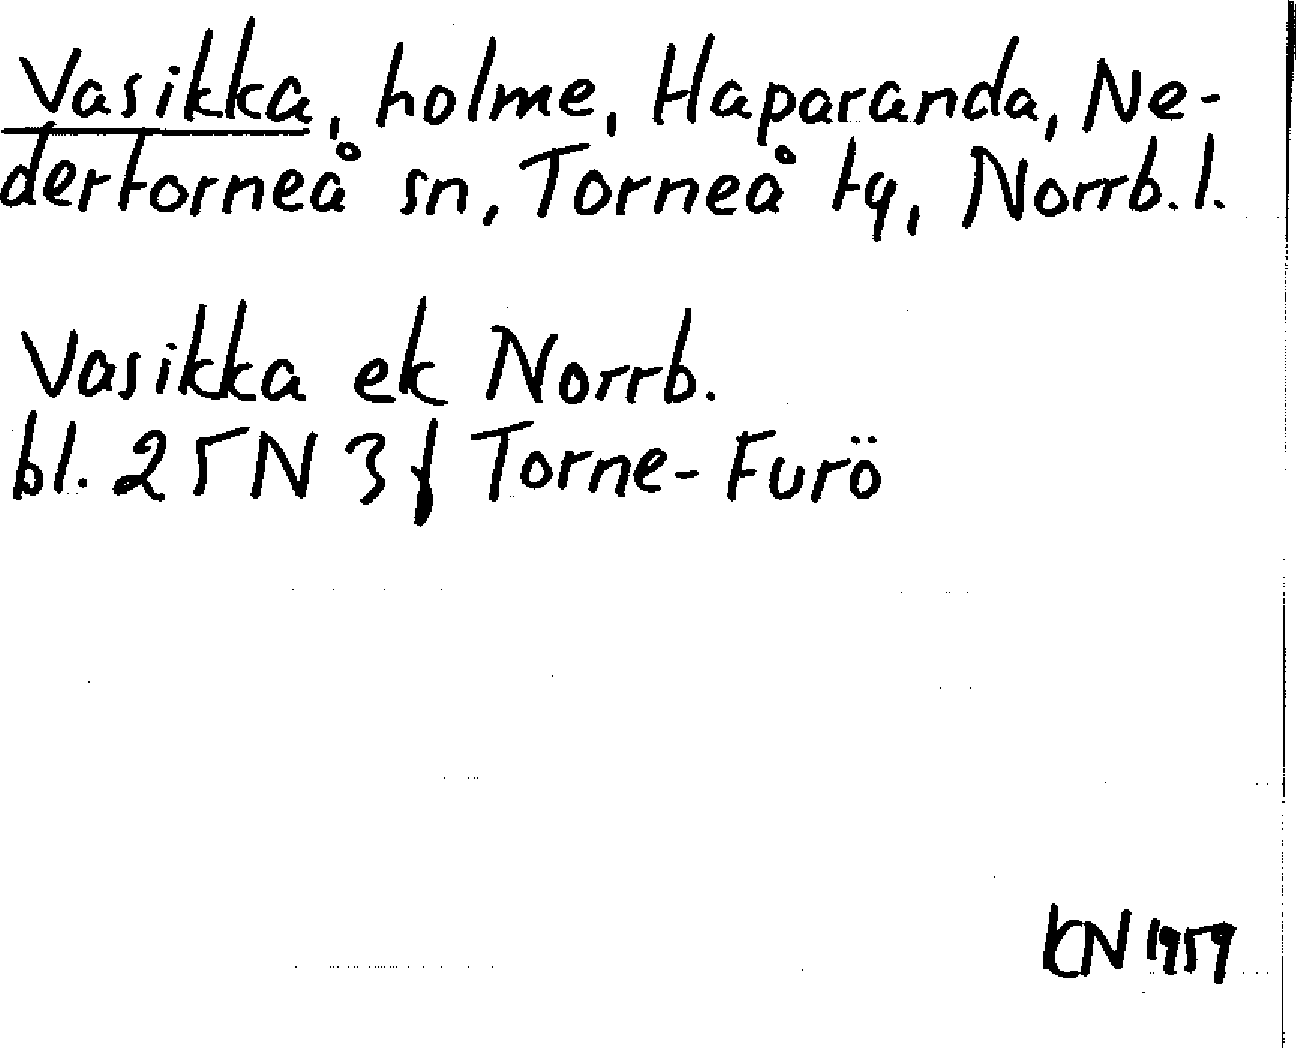 Vasikka, holme, Haparanda, Ne-
dertorneå sn, Torneå tg, Norrb. l.
Vasikka ek Norrb.
bl. 25N 3f Torne-Furö
KN 1959